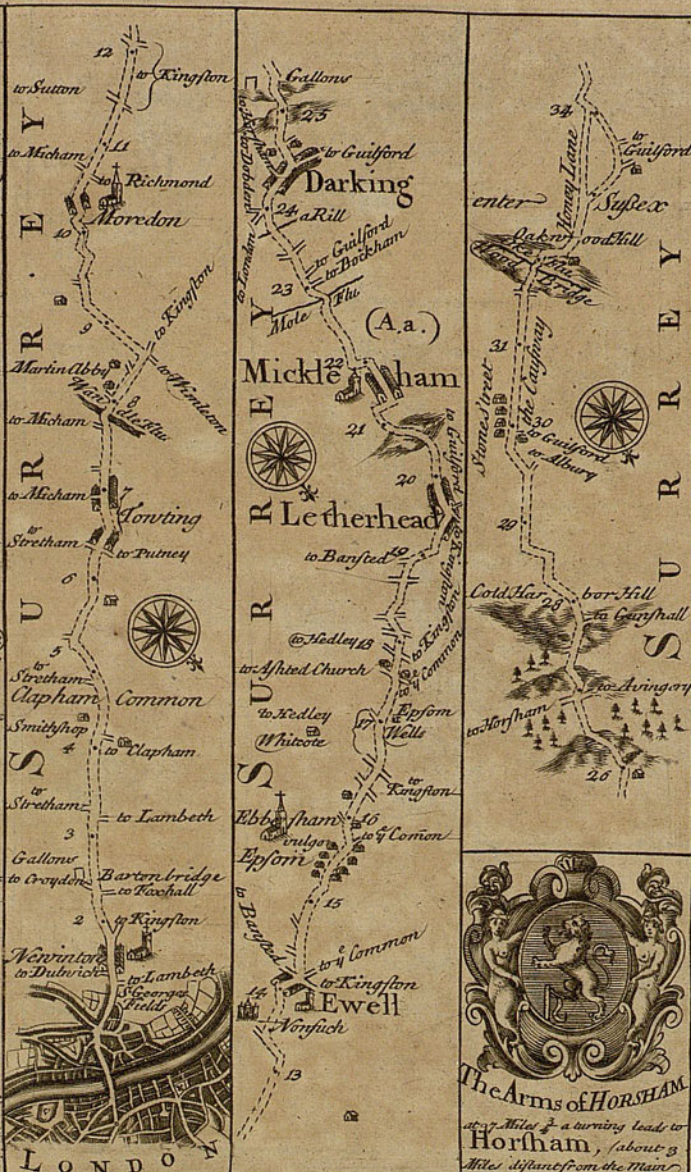 12
to Kingston
to Sutton
11
to Micham
to Richmond
Moredon
10
to Kingston
9
Martin Abby
to Wimleton
8
Wandle Flu
to Micham
to Micham
7
Towting
to Stretham
to Putney
6
5
to Stretham
Clapham Common
Smithshop
4
to Clapham
to Stretham
to Lambeth
3
Gallons
to Croydon
Barton bridge
to Foxhall
2
to Kingston
Newinton
to Dulwich
to Lambeth
St Georges Fields
LONDON
SURREY
Gallons
25
to Guilford
Darking
24
a Rill
to London
to Guilford
to Bockham
23
Mole Flu
(A.a.)
22
Mickleham
21
to Guilford
20
Letherhead
to Kingston
to Bansted
19
to Hedley
18
to Kingston
to Ashted Church
to ye Common
to Hedley
17
Epsom Wells
Whitcote
to Kingston
Ebbesham
16
vulgo
to ye Comon
Epsom
15
to Bansted
to ye Common
to Kingston
14
Ewell
Nonsuch
13
SURREY
34
to Guilford
Honey Lane
enter Sussex
Oaknwood Hill
Bridge
31
the Causway
Stone Street
30
to Guilford
to Albury
29
Cold Harbor Hill
28
to Gunshall
to Avingery
to Horsham
26
SURREY
The Arms of HORSHAM
at 27 Miles ¾ a turning leads to
Horsham, (about 3
Miles distant from the Main